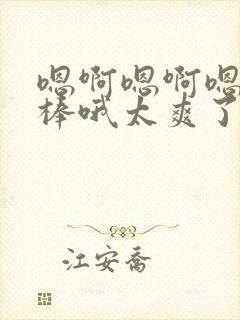 嗯啊嗯啊嗯
棒哦太爽了
江安乔